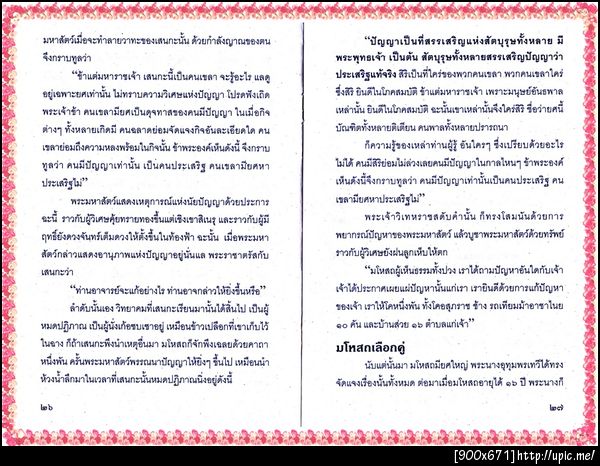 มหาสัตว์เมื่อจะทำลายวาทะของเสนกะนั้น ด้วยกำลังญาณของตน
จึงกราบทูลว่า
"ข้าแต่มหาราชเจ้า เสนกะนี้เป็นคนเขลา จะรู้อะไร แลดู
อยู่เฉพาะยศเท่านั้น ไม่ทราบความวิเศษแห่งปัญญา โปรดฟังเถิด
พระเจ้าข้า คนเขลามียศเป็นดุจทาสของคนมีปัญญา ในเมื่อกิจ
ต่างๆ ทั้งหลายเกิดมี คนฉลาดย่อมจัดแจงกิจอันละเอียดใด คน
เขลาย่อมถึงความหลงพร้อมในกิจนั้น ข้าพระองค์เห็นดังนี้ จึงกราบ
ทูลว่า คนมีปัญญาเท่านั้น เป็นคนประเสริฐ คนเขลามียศหา
ประเสริฐไม่"
พระมหาสัตว์แสดงเหตุการณ์แห่งนัยปัญญาด้วยประการ
ฉะนี้ ราวกับผู้วิเศษคุ้ยทรายทองขึ้นแต่เชิงเขาสิเนรุ และราวกับผู้มี
ฤทธิ์ยังดวงจันทร์เต็มดวงให้ตั้งขึ้นในท้องฟ้า ฉะนั้น เมื่อพระมหา
สัตว์กล่าวแสดงอานุภาพแห่งปัญญาอยู่นั่นแล พระราชาตรัสกับ
เสนกะว่า
"ท่านอาจารย์จะแก้อย่างไร ท่านอาจกล่าวให้ยิ่งขึ้นหรือ"
ลำดับนั้นเอง วิทยาคมที่เสนกะเรียนมานั้นได้สิ้นไป เป็นผู้
หมดปฏิภาณ เป็นผู้นั่งเก้อซบเซาอยู่ เหมือนข้าวเปลือกที่เขาเก็บไว้
ในฉาง ก็ถ้าเสนกะพึงนำเหตุอื่นมา มโหสถก็จักพึงเฉลยด้วยคาถา
หนึ่งพัน ครั้นพระมหาสัตว์พรรณนาปัญญาให้ยิ่งๆ ขึ้นไป เหมือนนำ
ห้วงน้ำลึกมาในเวลาที่เสนกะนั้นหมดปฏิภาณนิ่งอยู่ดังนี้
๒๖
"ปัญญาเป็นที่สรรเสริญแห่งสัตบุรุษทั้งหลาย มี
พระพุทธเจ้า เป็นต้น สัตบุรุษทั้งหลายสรรเสริญปัญญาว่า
ประเสริฐแท้จริง สิริเป็นที่ใคร่ของพวกคนเขลา พวกคนเขลาใคร่
ซึ่งสิริ ยินดีในโภคสมบัติ ข้าแต่มหาราชเจ้า เพราะมนุษย์อันธพาล
เหล่านั้น ยินดีในโภคสมบัติ ฉะนั้นเขาเหล่านั้นจึงใคร่สิริ ชื่อว่ายศนี้
บัณฑิตทั้งหลายติเตียน คนพาลทั้งหลายปรารถนา
ก็ความรู้ของเหล่าท่านผู้รู้ อันใครๆ ชั่งเปรียบด้วยอะไร
ไม่ได้ คนมีสิริย่อมไม่ล่วงเลยคนมีปัญญาในกาลไหนๆ ข้าพระองค์
เห็นดังนี้จึงกราบทูลว่า คนมีปัญญาเท่านั้นเป็นคนประเสริฐ คน
เขลามียศหาประเสริฐไม่"
พระเจ้าวิเทหราชสดับคำนั้น ก็ทรงโสมนัสด้วยการ
พยากรณ์ปัญหาของพระมหาสัตว์ แล้วบูชาพระมหาสัตว์ด้วยทรัพย์
ราวกับผู้วิเศษยังฝนลูกเห็บให้ตก
"มโหสถผู้เห็นธรรมทั้งปวง เราได้ถามปัญหาอันใดกับเจ้า
เจ้าได้ประกาศเผยแผ่ปัญหานั้นแก่เรา เรายินดีด้วยการแก้ปัญหา
ของเจ้า เราให้โคหนึ่งพัน ทั้งโคอุสุภราช ช้าง รถเทียมม้าอาชาไนย
๑๐ คัน และบ้านส่วย ๑๖ ตำบลแก่เจ้า"
มโหสถเลือกคู่
นับแต่นั้นมา มโหสถมียศใหญ่ พระนางอุทุมพรเทวีได้ทรง
จัดแจงเรื่องนั้นทั้งหมด ต่อมาเมื่อมโหสถอายุได้ ๑๖ ปี พระนางก็
๒๗
[900x671]http://upic.me/